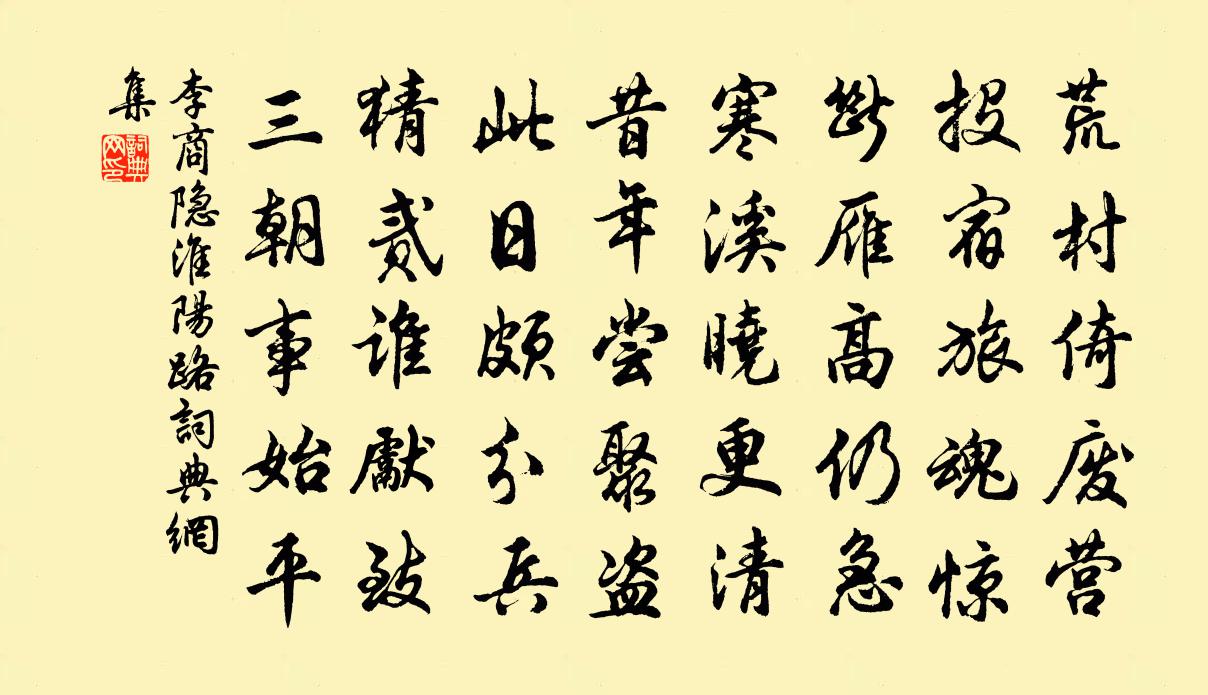 荒村倚废营
投宿旅魂惊
断雁高仍急
寒溪曉更清
昔年尝聚盗
此日頗分兵
猜貳谁獻致
三朝事始平
李商隐淮陽路詞典網
集
詞典
网印